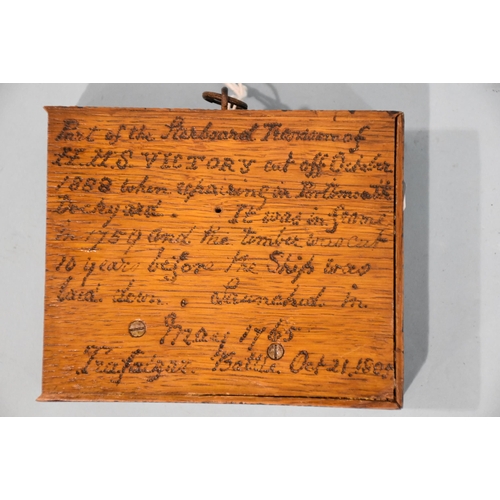 Part of the Starboard Transom of
H.M.S VICTORY cut off October
1888 when repairing in Portsmouth
Dockyard. It was in frame
in 1759 and the timber was cut
10 years before the Ship was
laid down. Launched in
May 1765
Trafalgar Battle Oct 21, 1805